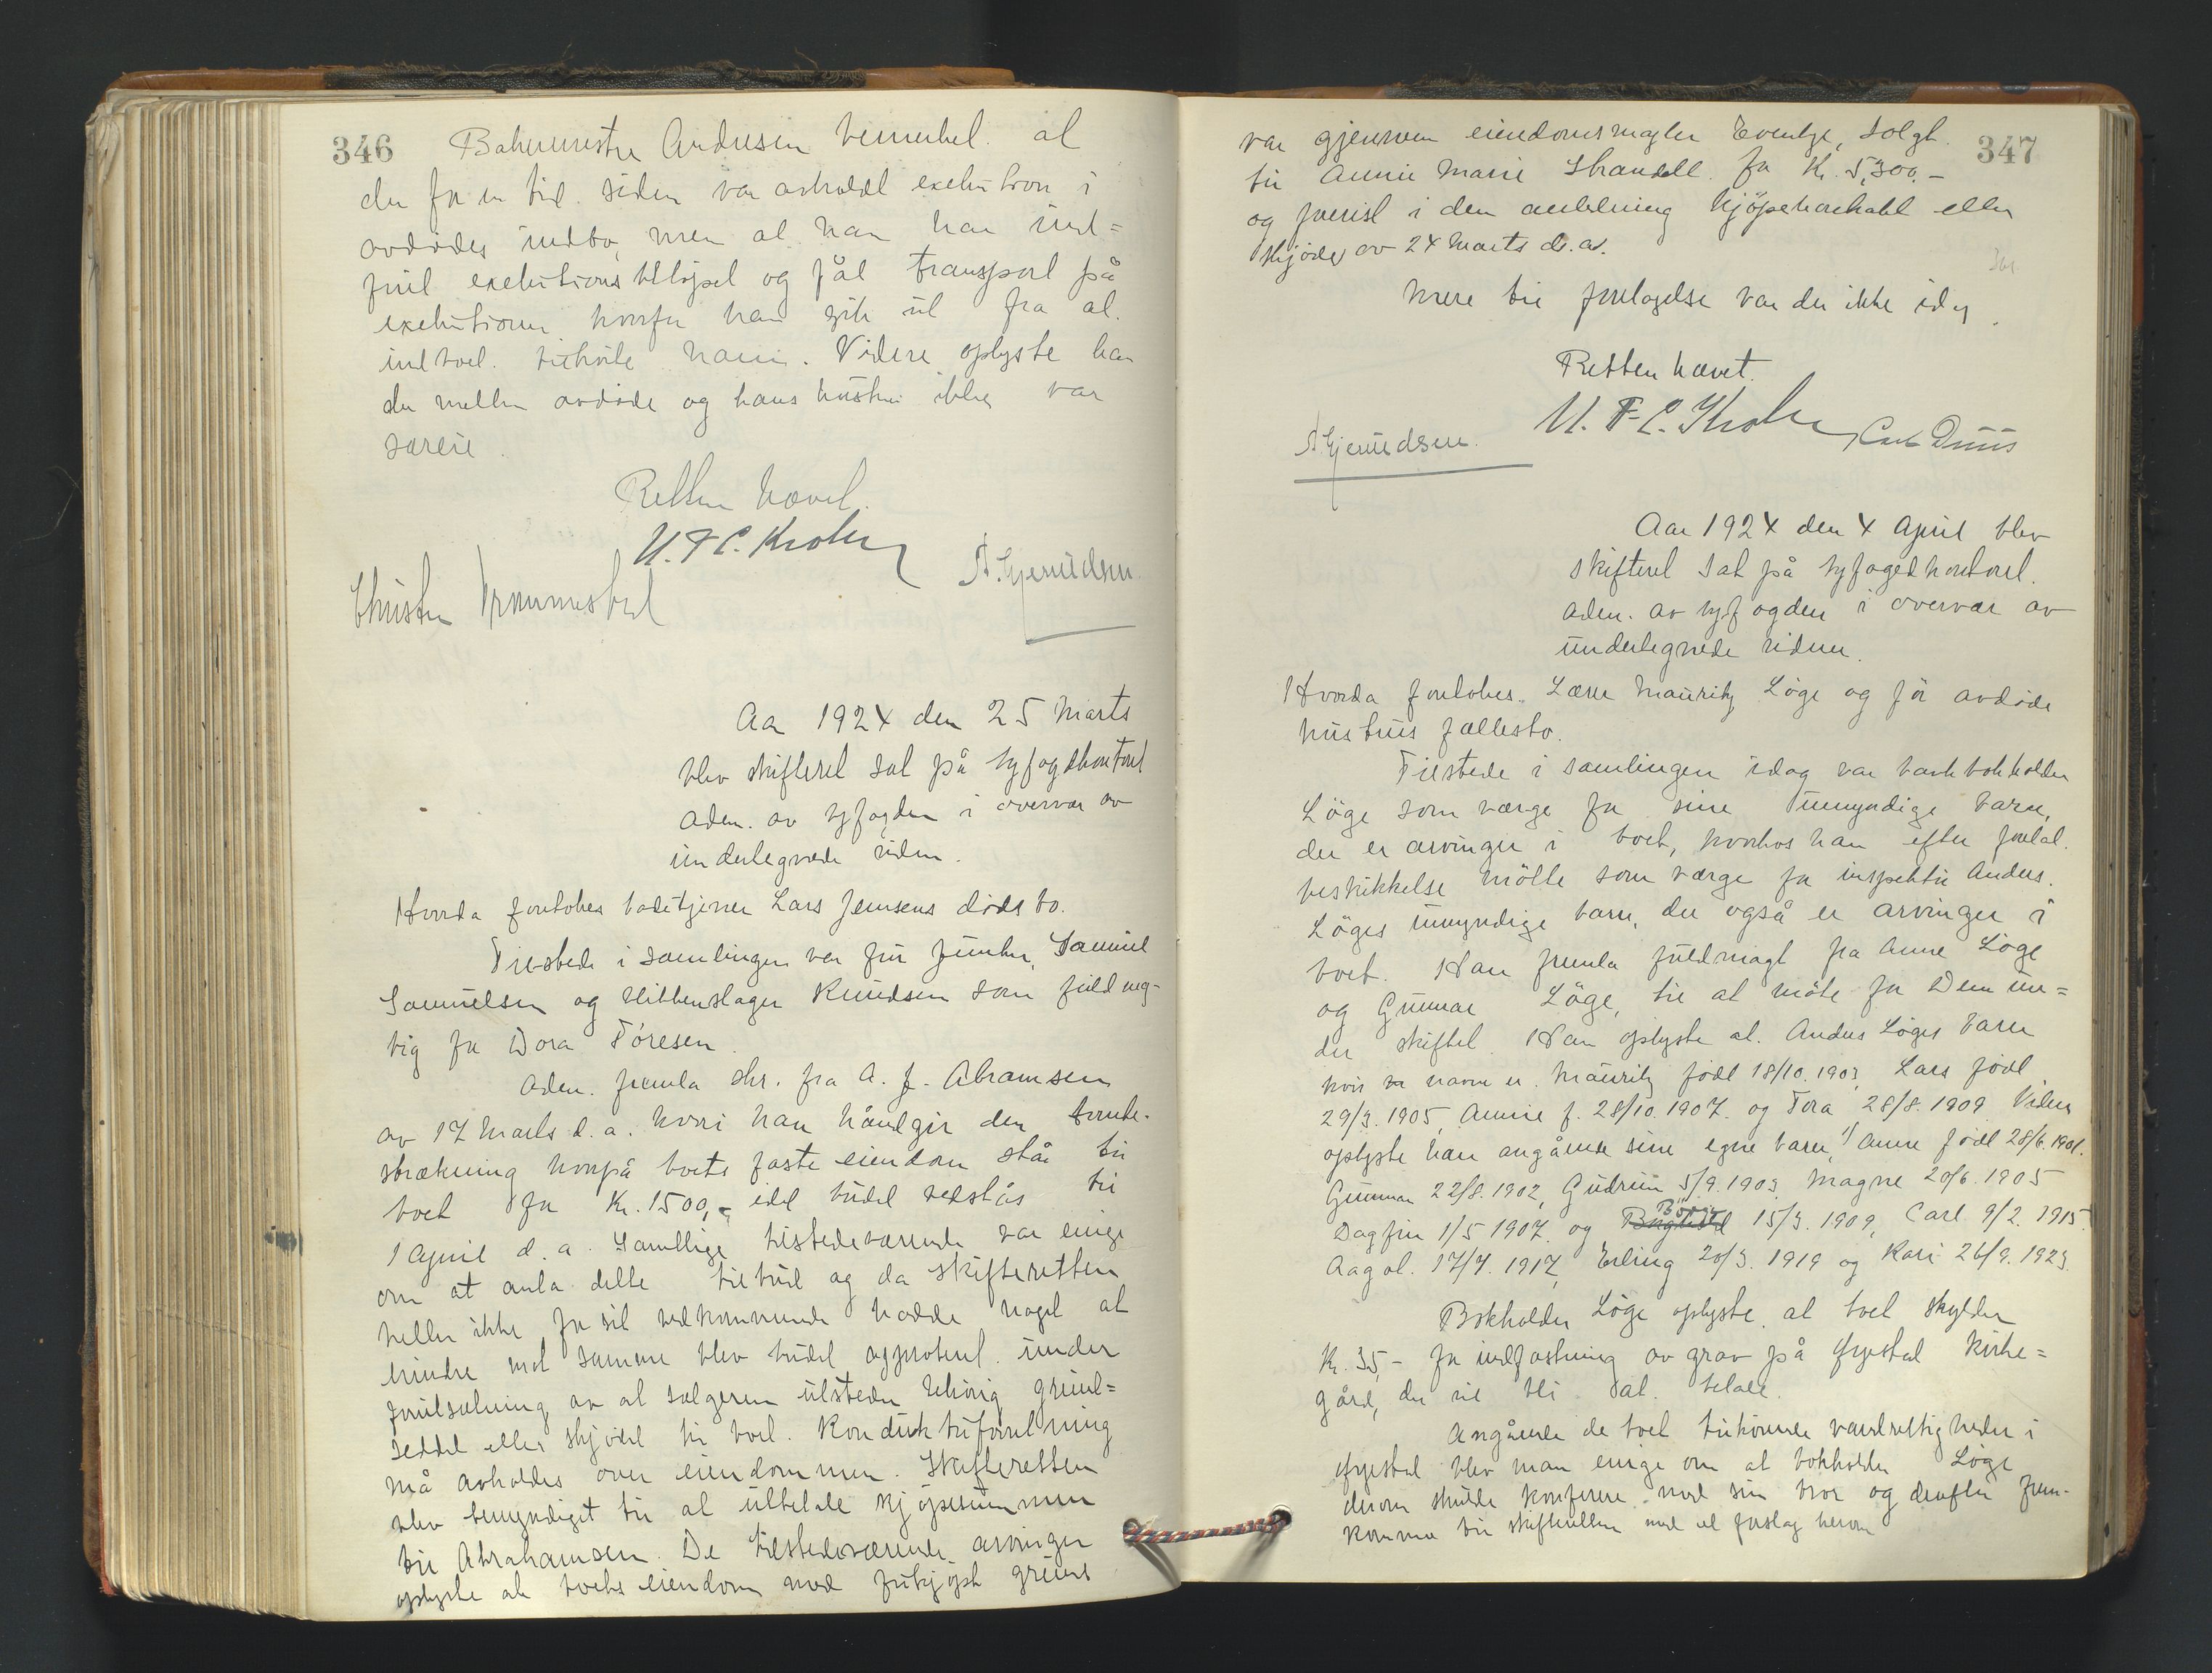 346
Bakermester Andresen bemerket at
der for en tid siden var avholdt exekution i
avdødes indbo, men at han har ind=
friet exekutionsbeløpet og fåt transport på
exekutionen hvorfor han gik ut fra at
indboet tilhørte ham. Videre oplyste han
der mellem avdøde og hans hustru ikke var
særeie.
Retten hævet.
U. F. C. Krohn
A. Gjerüldsen
Christen
Aar 1924 den 25 Marts
blev skifteret sat på byfogdkontoret
Aden. av byfogden i overvær av
undertegnede vidner.
Hvorda foretokes badetjener Lars Jensens dødsbo.
Tilstede i samlingen var fru Junker, Samuel
Samuelsen og blikkenslager Knudsen som fuldmæg-
tig for Dora Toresen.
Adm. fremla skr. fra A. J. Abramsen
av 17 Marts d.a. hvori han håndgir den tomte-
strækning hvorpå boets faste eiendom står til
boet for Kr. 1500,- idet budet vedståes til
1 April d.a. Samtlige tilstedeværende var enige
om at anta dette tilbud og da skifteretten
heller ikke for sit vedkommende hadde noget at
hindre mot samme blev budet approbert under
forutsætning av at sælgeren utsteder behørig grund=
seddel eller skjøte til boet. Konduktørforretning
må avholdes over eiendommen. Skifteretten
blev bemyndiget til at utbetale kjøpesummen
til Abrahamsen. De tilstedeværende arvinger
oplyste at boets eiendom med frikjøpt grund
347
var gjennem eiendomsmægler Eventye, solgt
til Annie Marie Strandell for Kr. 5,300.-
og forevist i den anledning kjøpekontrakt eller
skjøte av 24 Marts d.a.
Mere til foretagelse var der ikke idag.
Retten hævet.
U. F. C. Krohn
A. Gjerüldsen.
Carl Duus
Aar 1924 den 4 April blev
skifteret sat på byfogedkontoret.
Aden. av byfogden i overvær av
undertegnede vidner.
Hvorda foretokes Lærer Mauritz Løge og før avdøde
hustrus fællesbo.
Tilstede i samlingen idag var bankbokholder
Løge som værge for sine umyndige barn,
der er arvinger i boet, hvorhos han efter foretat
beskikkelse møtte som værge for inspektør Anders
Løges umyndige barn, der også er arvinger i
boet. Han fremla fuldmagt fra Anne Løge
og Gunnar Løge, til at møte for dem un=
der skiftet. Han oplyste at Anders Løges barn
hvis navn er Mauritz født 18/10. 1903, Lars født
29/3. 1905, Annie f. 28/10. 1907. og Tora 28/8. 1909 Videre
oplyste han angående sine egne barn, 1/ Anne født 28/6. 1901.
Gunnar 22/8. 1902, Gudrun 5/9. 1903, Magne 20/6. 1905
Dagfin 1/5 1907. og Börge 15/3. 1909, Carl 9/2. 1915.
Aagot. 17/7. 1917, Erling 20/3. 1919 og Kari 26/9. 1923.
Bokholder Løge oplyste at boet skylder
Kr. 35,- for indfæstning av grav på Egestad Kirke=
gård, der vil bli at betale.
Angående de boet tilhørende vandrettigheder i
Egestad blev man enige om at bokholder Løge
derom skulde konferere med sin bror og derefter frem-
komme til skifteretten med et forslag herom